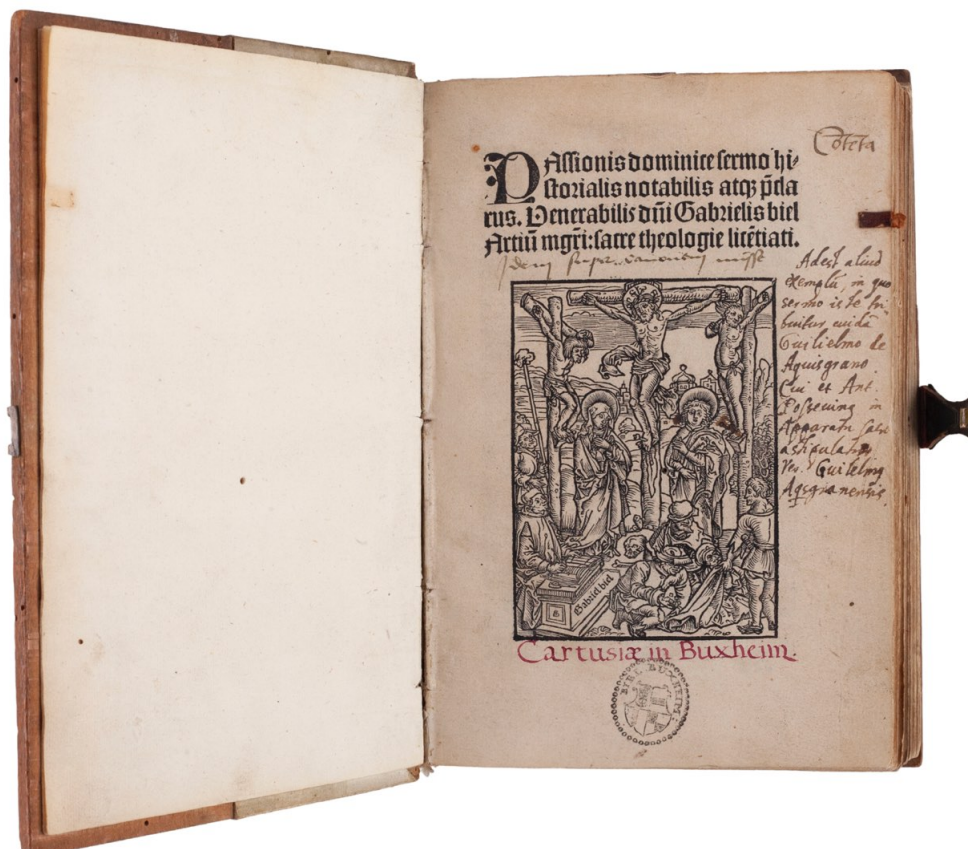 Cōtēta
PAssionis dominice sermo hi-
storialis notabilis atqꝫ p̄cla
rus. Venerabilis dn̄i Gabrielis biel
Artiū mgr̄i: sacre theologie licētiati.
Idem super canonem misse
Adest aliud
exemplū, in quo
sermo iste tri
buitur cuidā
Guilielmo de
Aquisgrano
Cui et Ant.
Posseuing in
Apparatu sacr
astipulatur
Guilelmg
Aqsgranensis
Gabriel biel
Cartusiæ in Buxheim.
BIBL. BUXHEIM.